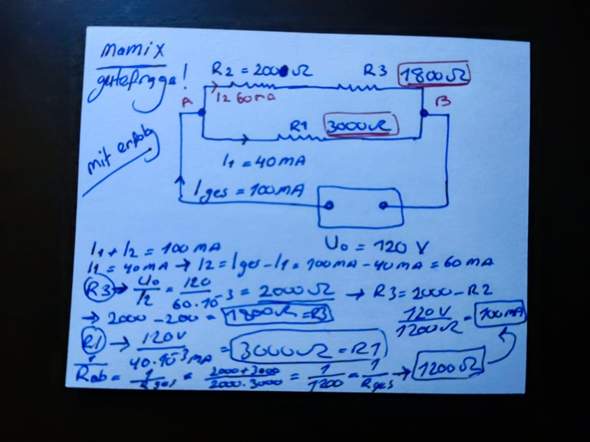 mamix
gutefrage!
mit erfolg
R2 = 200Ω R3 1800Ω
A I2 60mA B
R1 3000Ω
I1 = 40mA
Iges = 100mA
U0 = 120 V
I1 + I2 = 100 mA
I1 = 40mA → I2 = Iges - I1 = 100mA - 40mA = 60mA
R3 → U0/I2 = 120/60·10^-3 = 2000Ω → R3 = 2000 - R2
→ 2000 - 200 = 1800Ω = R3 120V/1200Ω = 100mA
R1 → 120V/40·10^-3 mA = 3000Ω = R1
1/Rab = 1/Rges = 2000+3000/2000·3000 = 1/1200 = 1/Rges → 1200Ω